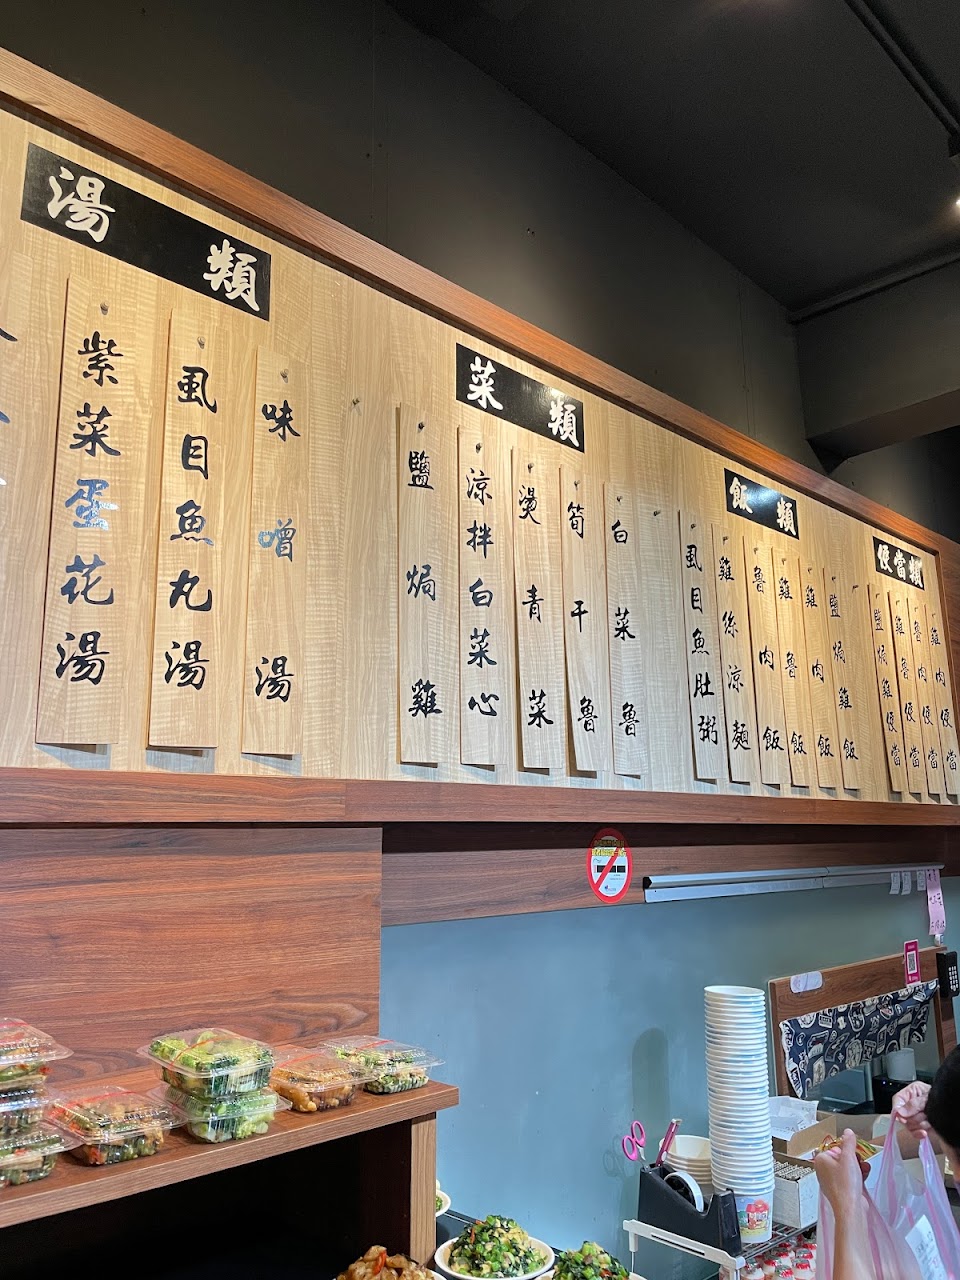 湯類
紫菜蛋花湯
虱目魚丸湯
味噌湯
菜類
鹽焗雞
涼拌白菜心
燙青菜
筍干魯
白菜魯
飯類
虱目魚肚粥
雞絲涼麵
魯肉飯
雞魯飯
雞肉飯
鹽焗雞飯
便當類
鹽焗雞便當
雞魯便當
魯肉便當
雞肉便當